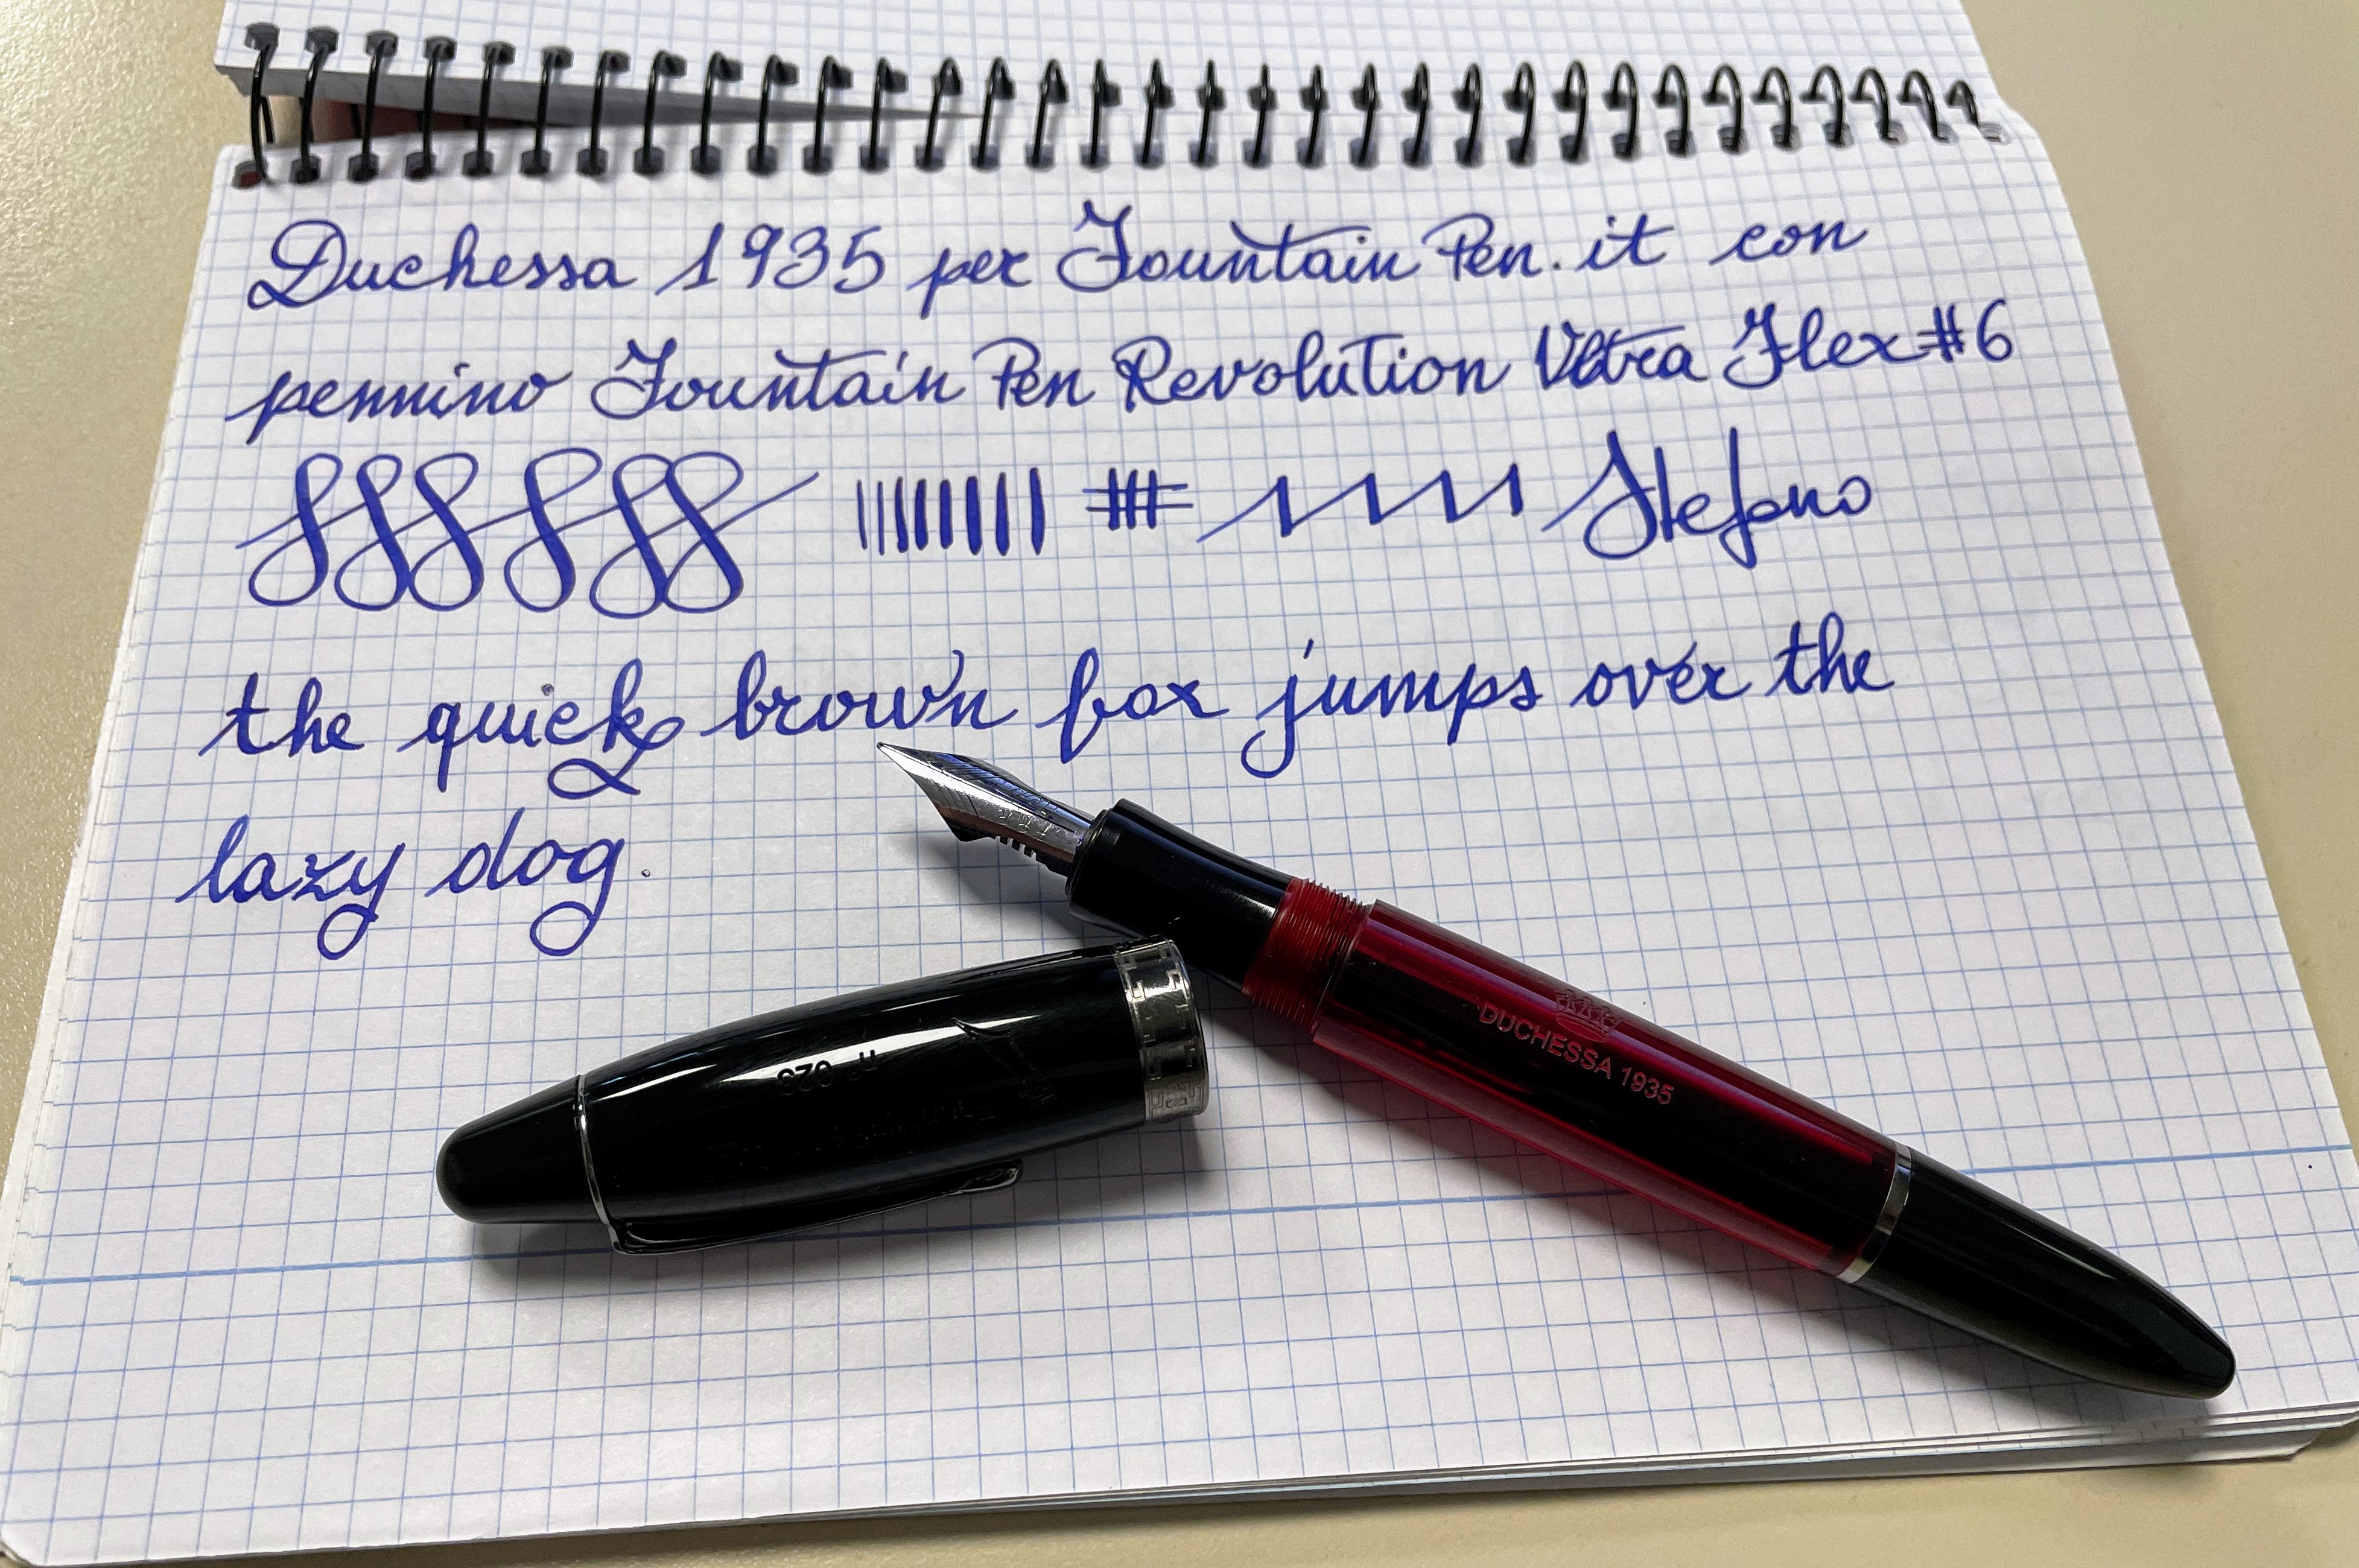 Duchessa 1935 per Fountain Pen.it con
pennino Fountain Pen Revolution Ultra Flex #6
Stefano
the quick brown fox jumps over the
lazy dog.
n° 023
DUCHESSA 1935